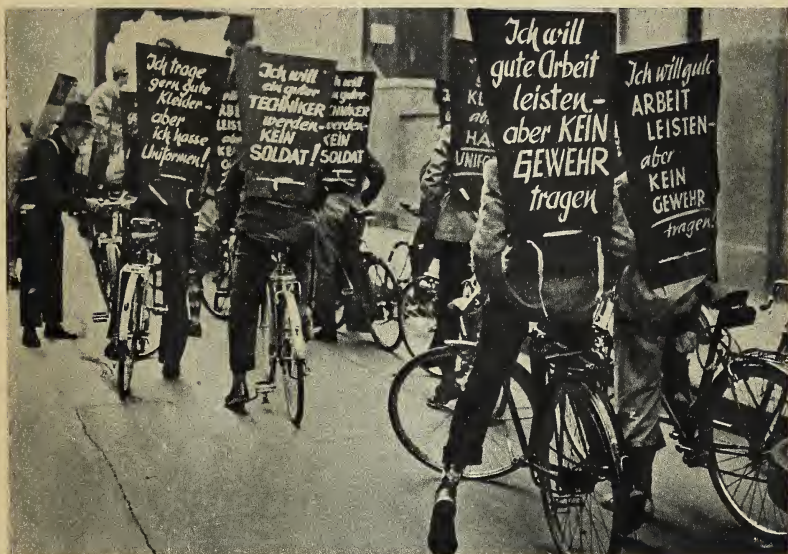 Ich trage
gern gute
Kleider-
aber
ich hasse
Uniformen!
Ich will
ein guter
TECHNIKER
werden-
KEIN
SOLDAT!
will
guter
werden-
KEIN
SOLDAT
aber
UNIFO
Ich will
gute Arbeit
leisten-
aber KEIN
GEWEHR
tragen
Ich will gute
ARBEIT
LEISTEN-
aber
KEIN
GEWEHR
tragen!